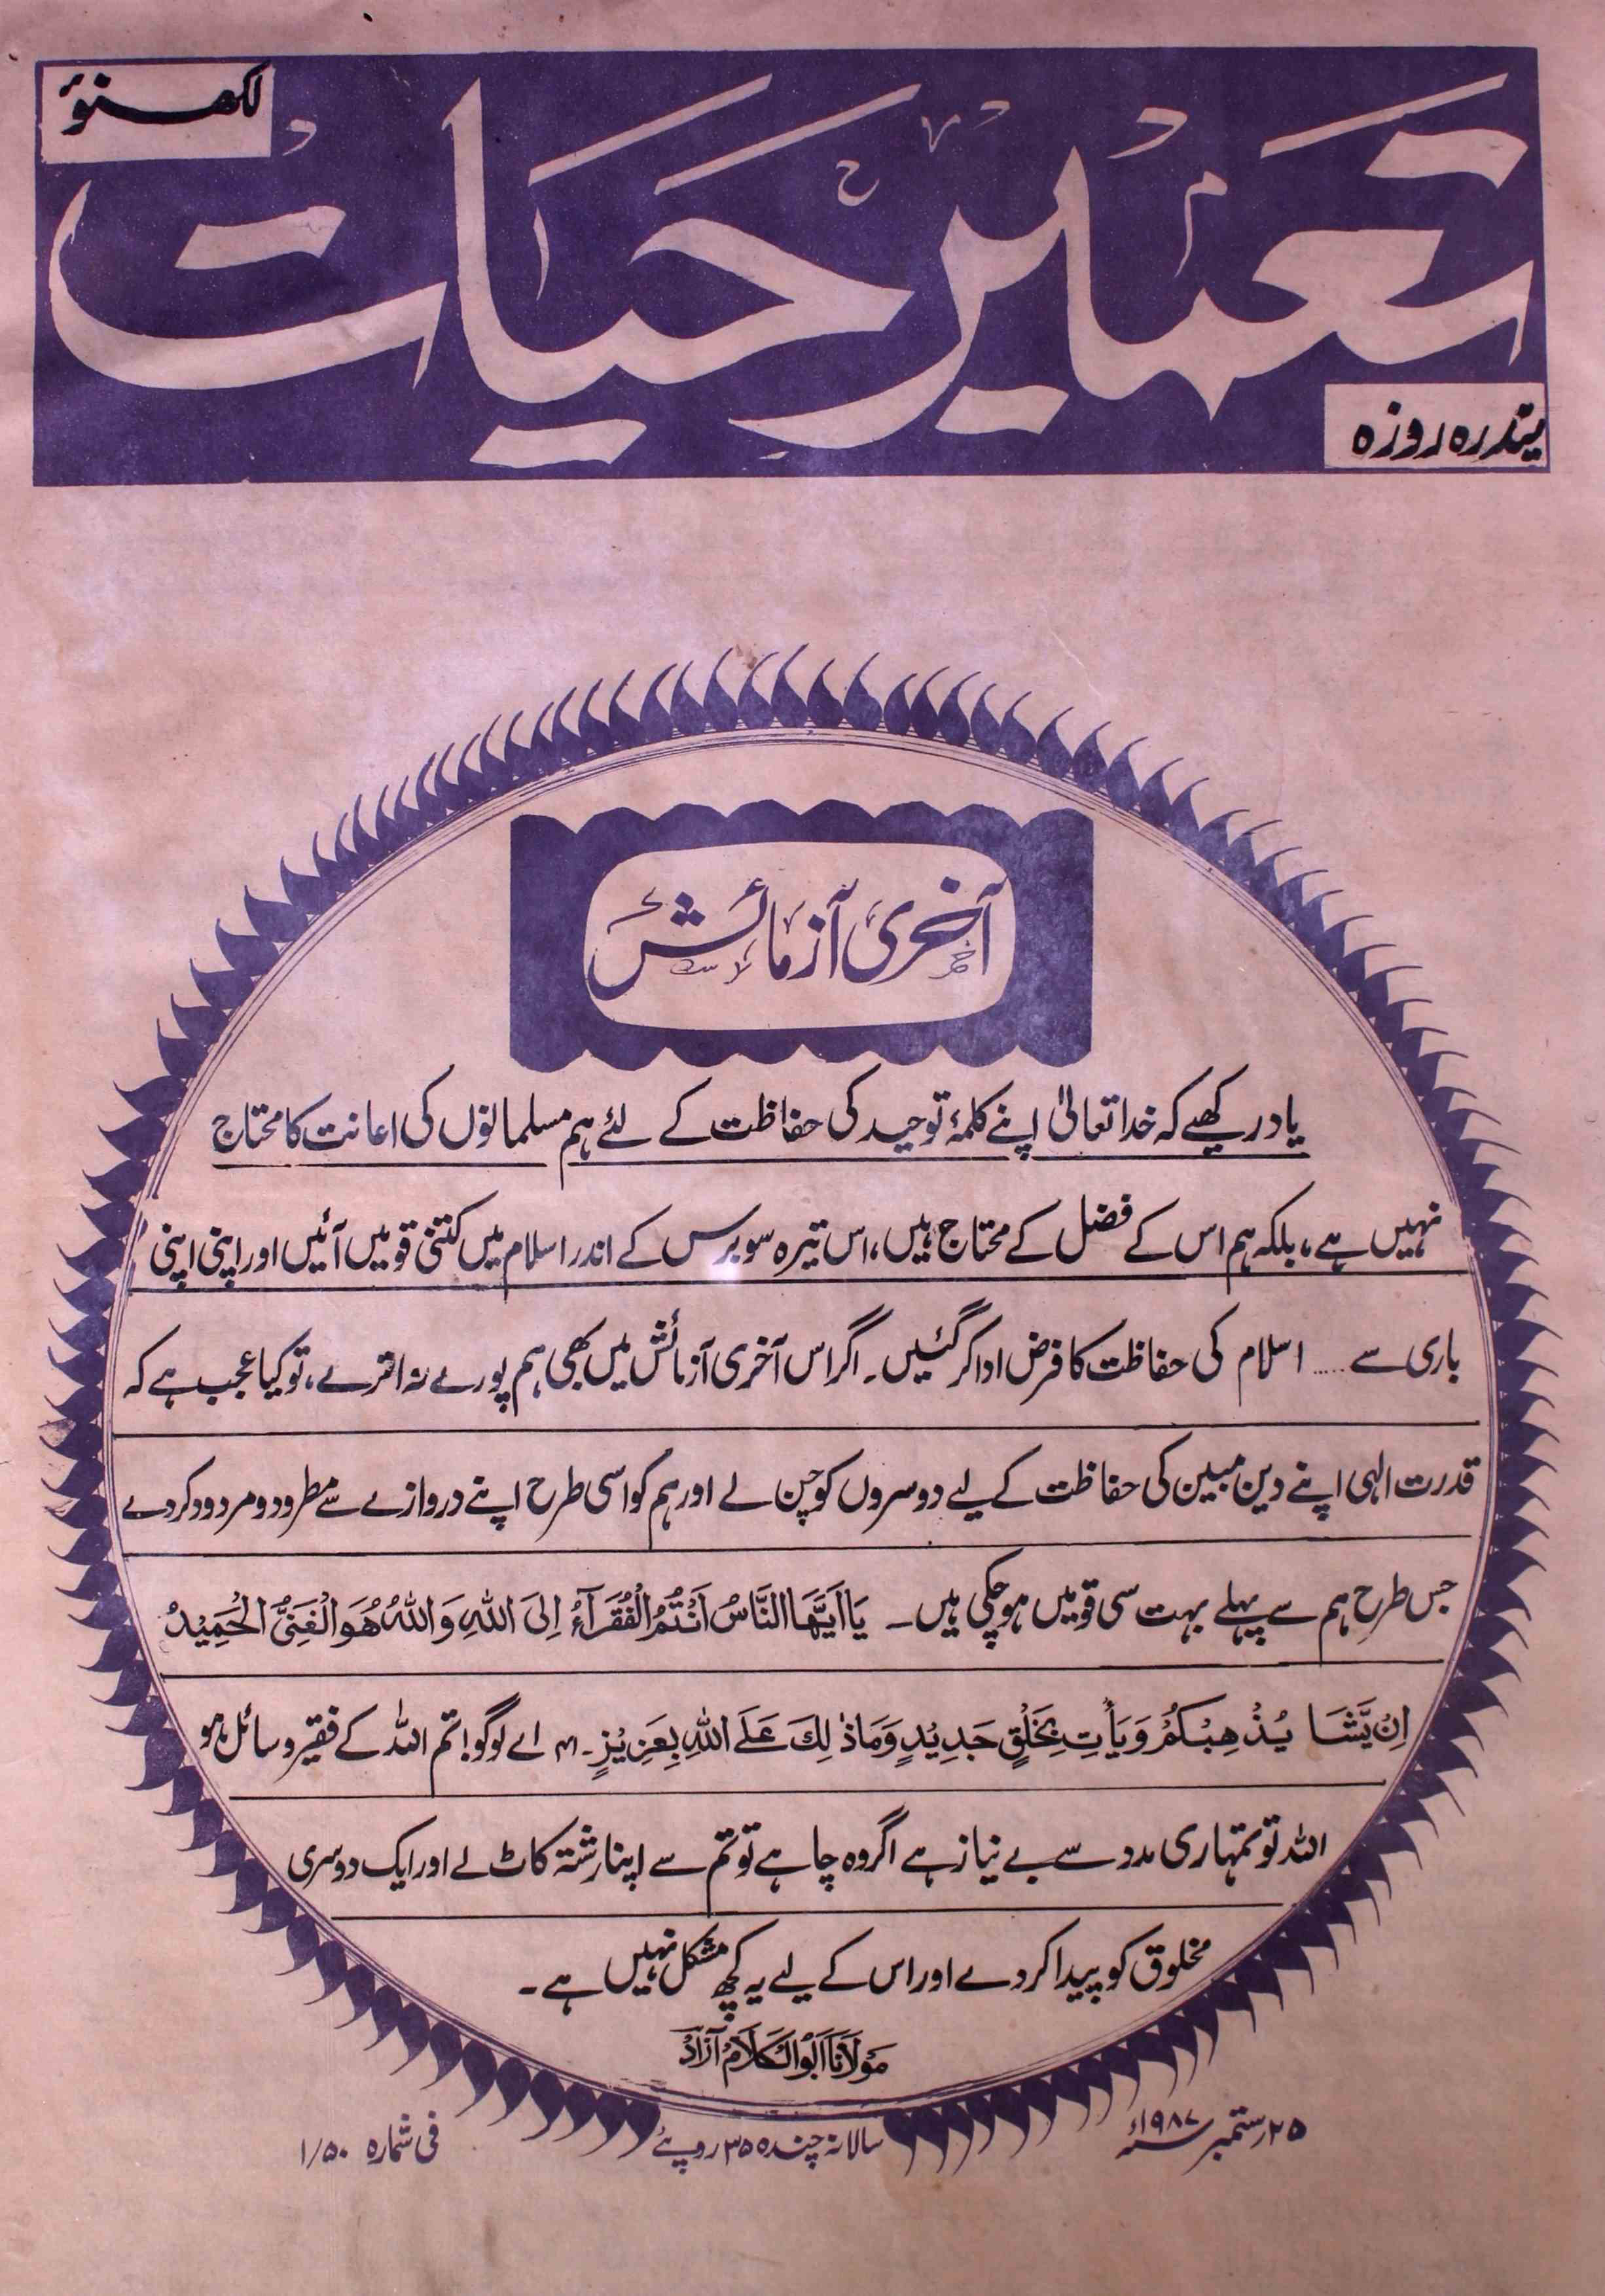 لکھنؤ
تعمیر حیات
پندرہ روزہ
آخری آزمائش
یاد رکھیے کہ خدا تعالیٰ اپنے کلمۂ توحید کی حفاظت کے لئے ہم مسلمانوں کی اعانت کا محتاج
نہیں ہے، بلکہ ہم اس کے فضل کے محتاج ہیں، اس تیرہ سو برس کے اندر اسلام میں کتنی قومیں آئیں اور اپنی اپنی
باری سے ..... اسلام کی حفاظت کا فرض ادا کر گئیں۔ اگر اس آخری آزمائش میں بھی ہم پورے نہ اترے، تو کیا عجب ہے کہ
قدرت الٰہی اپنے دین مبین کی حفاظت کے لیے دوسروں کو چن لے اور ہم کو اسی طرح اپنے دروازے سے مطرود و مردود کر دے
جس طرح ہم سے پہلے بہت سی قومیں ہو چکی ہیں۔ یَا اَیُّهَا النَّاسُ اَنْتُمُ الْفُقَرَآءُ اِلَی اللهِ وَاللهُ هُوَ الْغَنِیُّ الْحَمِیْدُ
اِنْ یَّشَا یُذْهِبْکُمْ وَیَأْتِ بِخَلْقٍ جَدِیْدٍ وَمَا ذٰلِکَ عَلَی اللهِ بِعَزِیْزٍ۔ اے لوگو! تم اللہ کے فقیر و سائل ہو
اللہ تو تمہاری مدد سے بے نیاز ہے اگر وہ چاہے تو تم سے اپنا رشتہ کاٹ لے اور ایک دوسری
مخلوق کو پیدا کر دے اور اس کے لیے یہ کچھ مشکل نہیں ہے۔
مَوْلَانَا اَبُوالْکَلَامْ آزَادْ
۲۵ ستمبر ۱۹۸۷ء
سالانہ چندہ ۳۵ روپئے
فی شمارہ ۱/۵۰